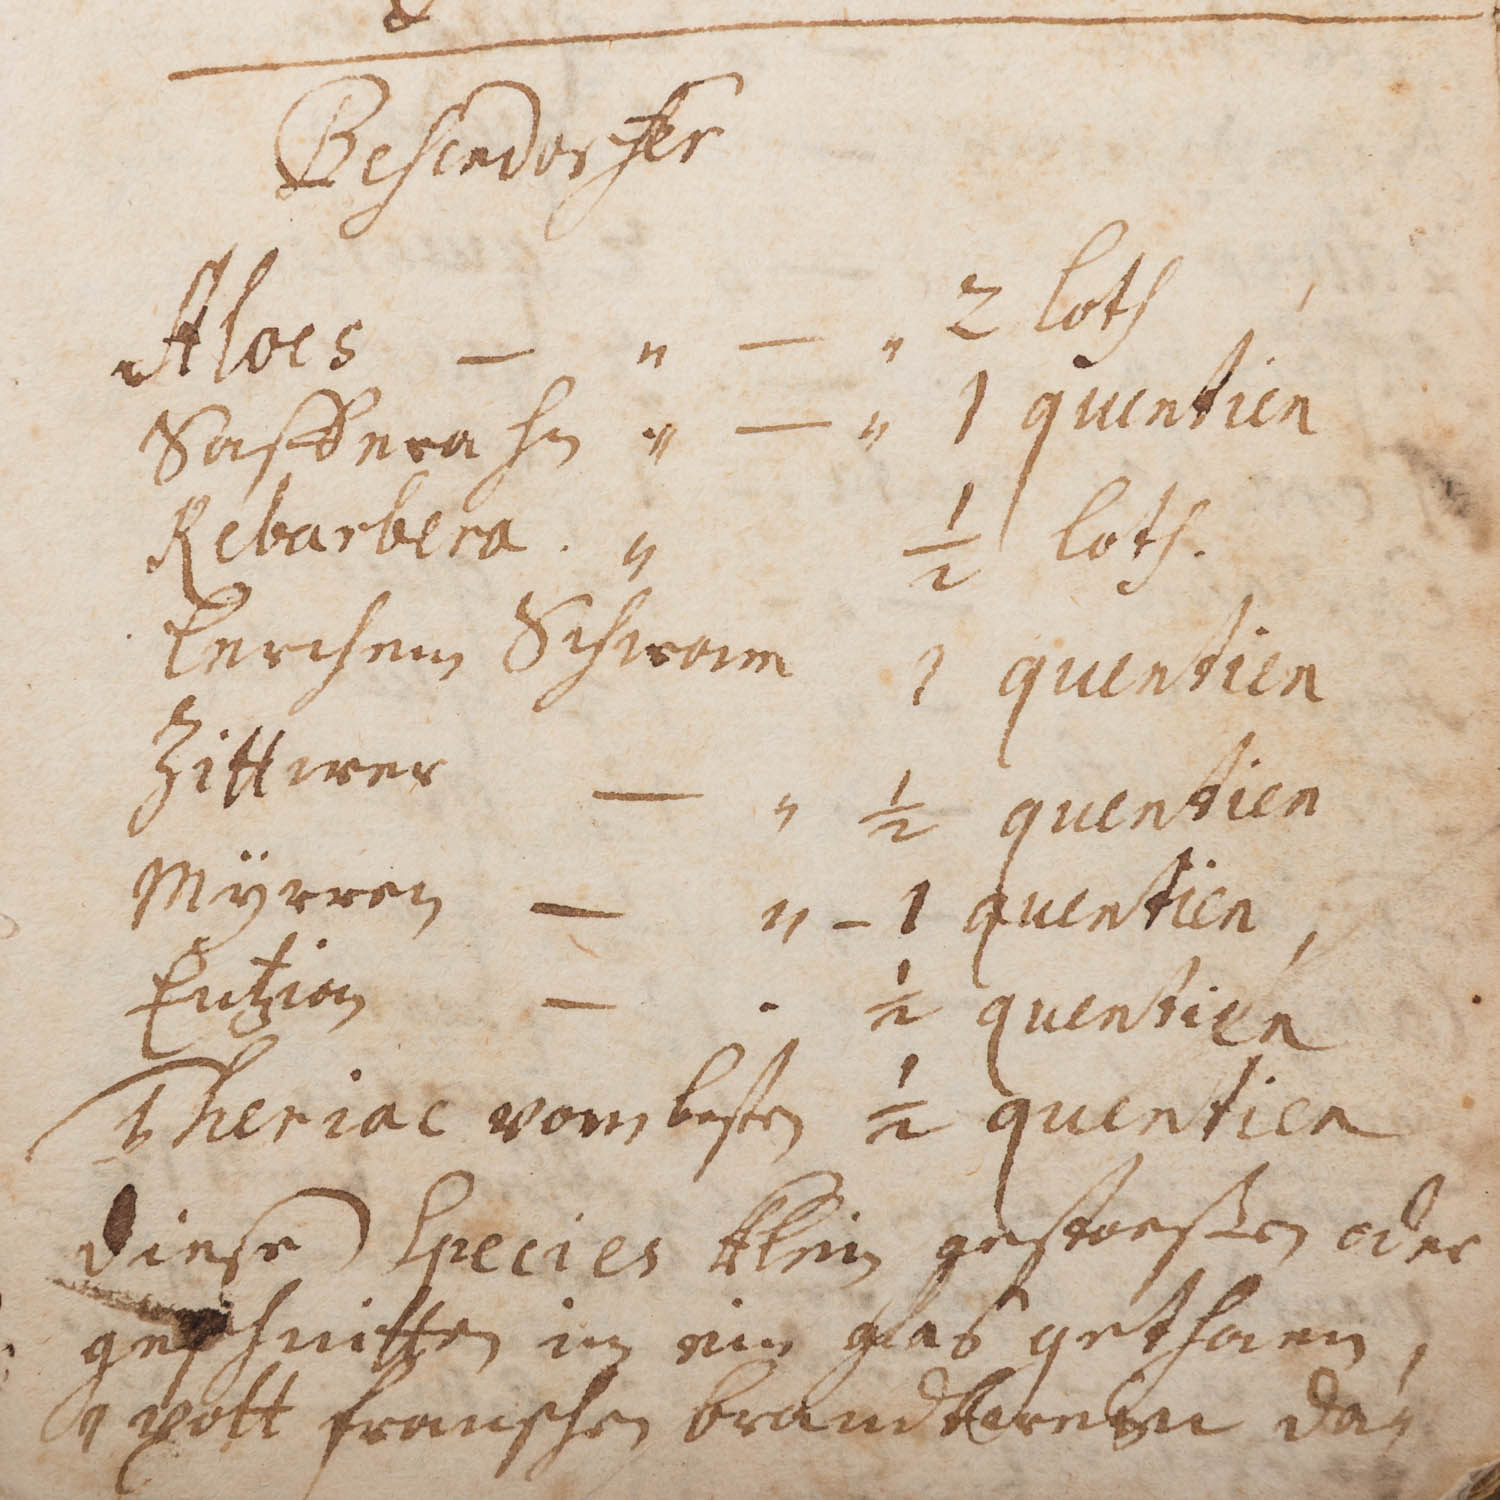 Besendorffer
Aloes — „ — „ 2 loth
Safferahn „ — „ 1 quentien
Rebarbera . „ ½ loth.
Lerchem Schwam 1 quentien
Zittwer — „ ½ quentien
Mÿrren — „ – 1 quentien,
Entzian — . ½ quentien
Theriac vom besten ½ quentien
diese Species klein gestoeßen oder
geschnitten in ein glas gethaen,
1 franschen brandewein